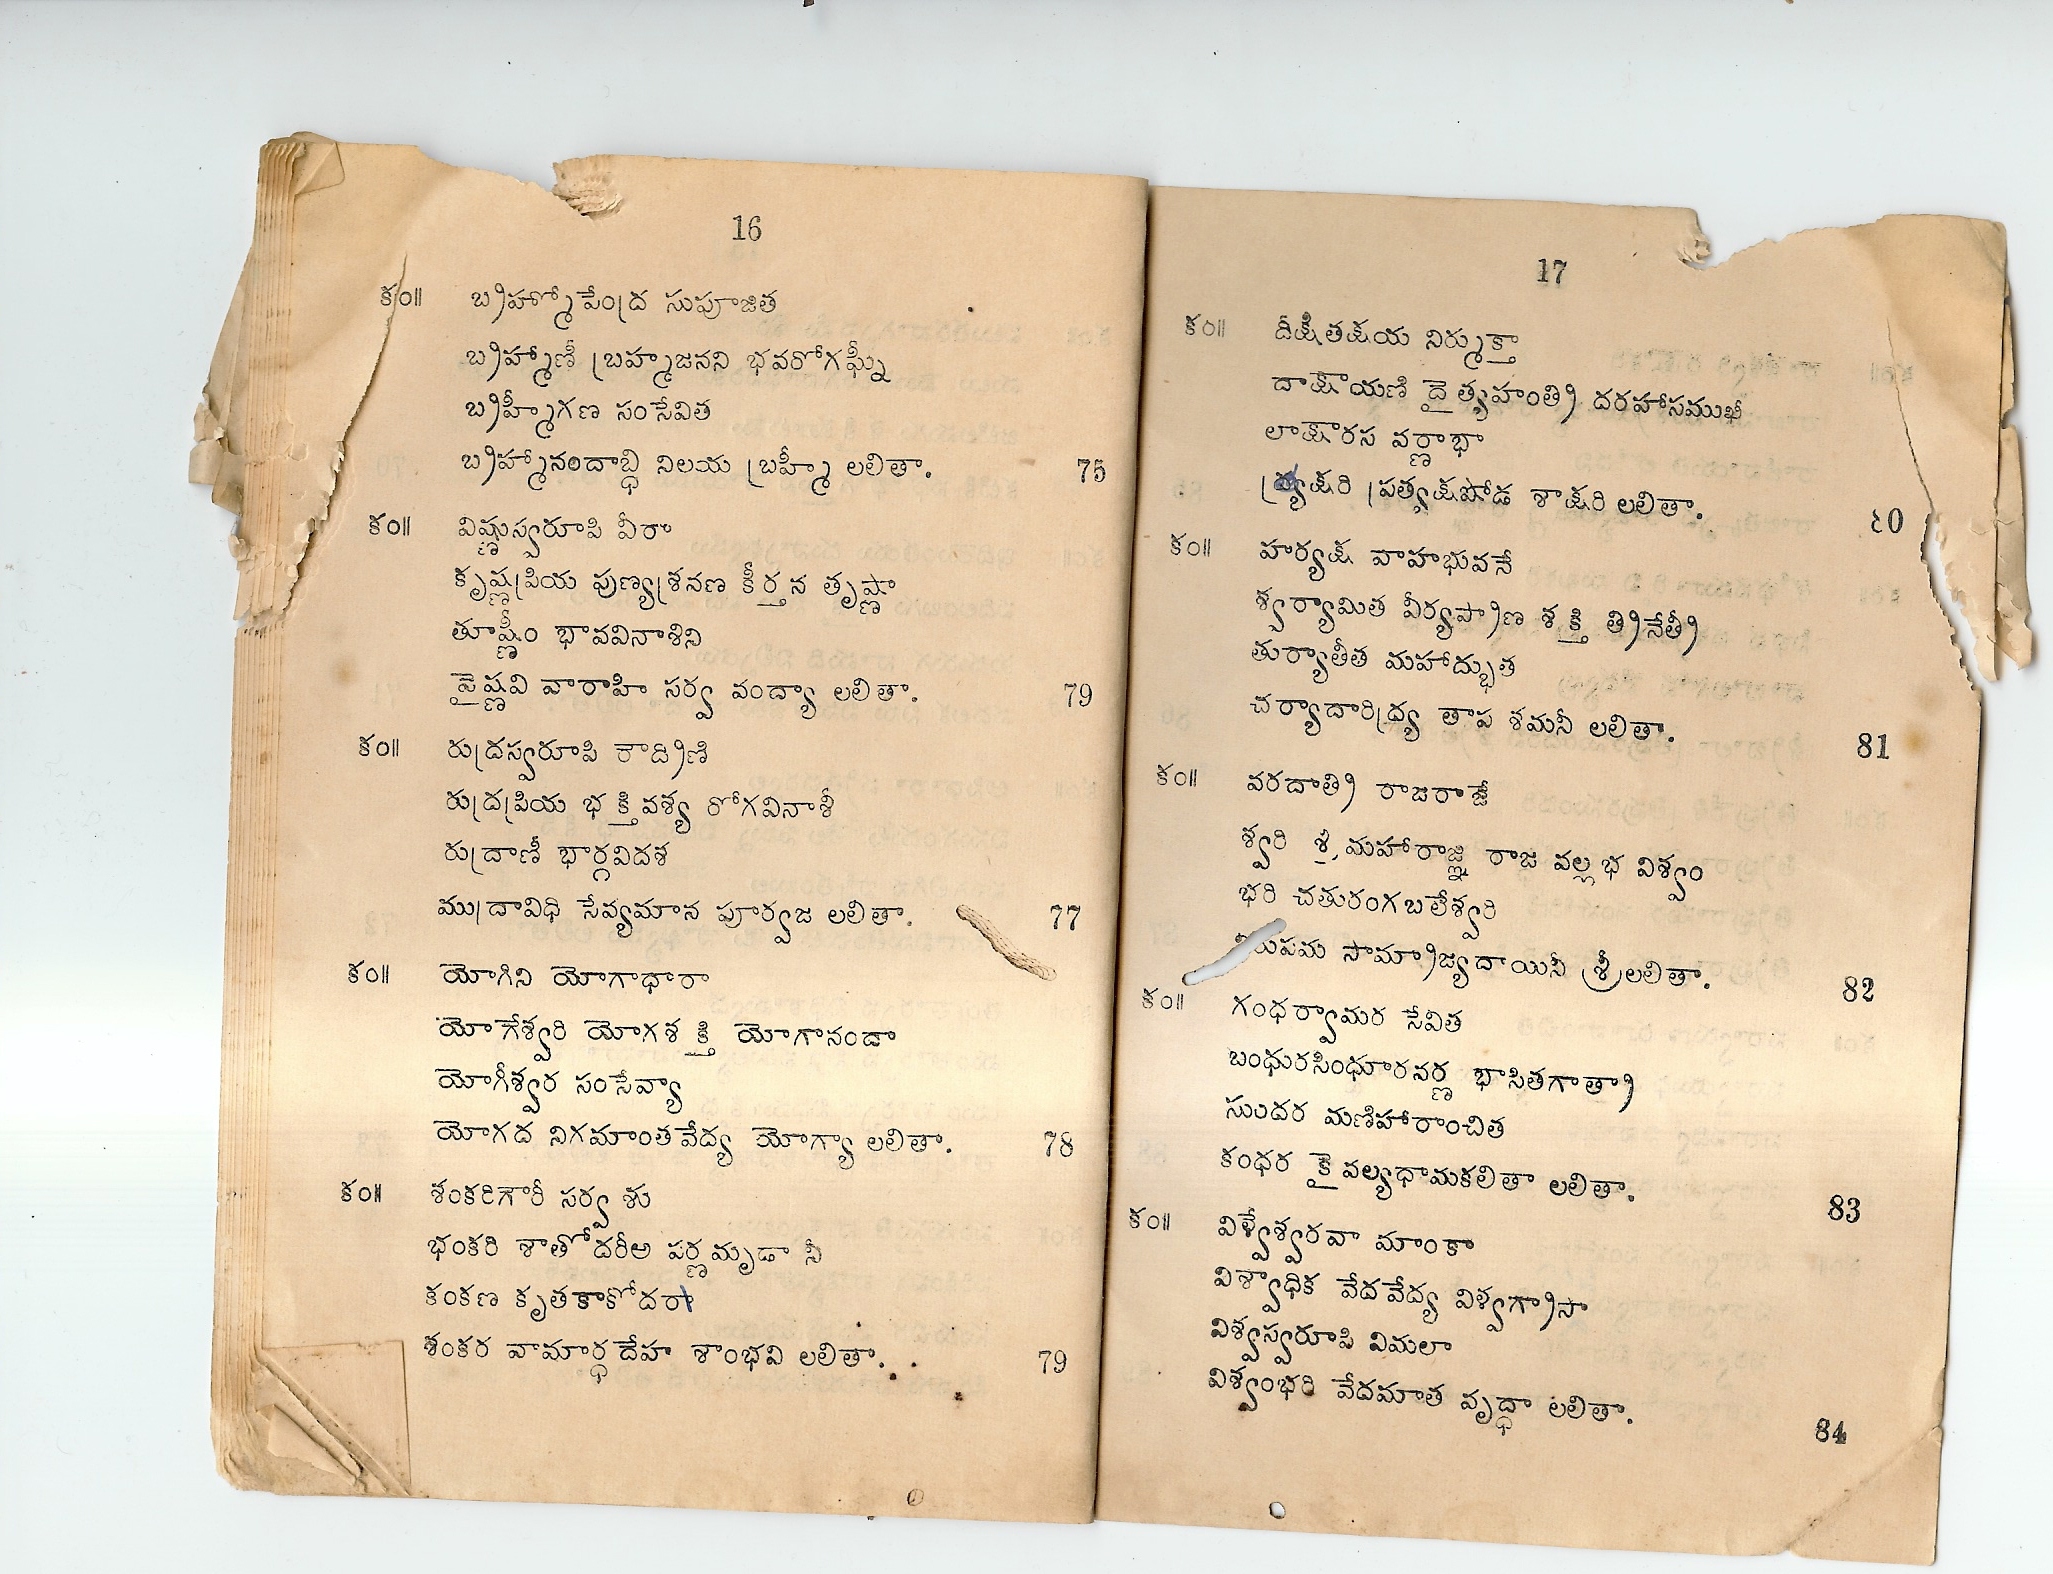 16
కం॥ బ్రహ్మోపేంద్ర సుపూజిత
బ్రహ్మాణీ బ్రహ్మజనని భవరోగఘ్నీ
బ్రహ్మీగణ సంసేవిత
బ్రహ్మానందాబ్ధి నిలయ బ్రహ్మీ లలితా. 75
కం॥ విష్ణుస్వరూపి వీరా
కృష్ణప్రియ పుణ్యశ్రవణ కీర్తన తృష్ణా
తూష్ణీం భావవినాశిని
వైష్ణవి వారాహి సర్వ వంద్యా లలితా. 79
కం॥ రుద్రస్వరూపి రాద్రిణి
రుద్రప్రియ భక్తివశ్య రోగవినాశీ
రుద్రాణీ భార్గవిదశ
ముద్రావిధి సేవ్యమాన పూర్వజ లలితా. 77
కం॥ యోగిని యోగాధారా
యోగేశ్వరి యోగశక్తి యోగానందా
యోగీశ్వర సంసేవ్యా
యోగద నిగమాంతవేద్య యోగ్యా లలితా. 78
కం॥ శంకరిగౌరీ సర్వ శు
భంకరి శాతోదరీఅ పర్ణమృడా నీ
కంకణ కృతకాకోదరా
శంకర వామార్ధదేహ శాంభవి లలితా. 79
17
కం॥ దీక్షితక్షయ నిర్ముక్తా
దాక్షాయణి దైత్యహంత్రి దరహాసముఖీ
లాక్షారస వర్ణాభా
త్ర్యక్షరి ప్రత్యక్షషోడ శాక్షరి లలితా. 80
కం॥ హర్యక్ష వాహభువనే
శ్వర్యామిత వీర్యప్రాణ శక్తి త్రినేత్రీ
తుర్యాతీత మహాద్భుత
చర్యాదారిద్ర్య తాప శమనీ లలితా. 81
కం॥ వరదాత్రి రాజరాజే
శ్వరి శ్రీమహారాజ్ఞి రాజ వల్లభ విశ్వం
భరి చతురంగబలేశ్వరి
రుపమ సామ్రాజ్యదాయినీ శ్రీలలితా. 82
కం॥ గంధర్వామర సేవిత
బంధురసింధూరవర్ణ భాసితగాత్రా
సుందర మణిహారాంచిత
కంధర కైవల్యధామకలితా లలితా. 83
కం॥ విశ్వేశ్వరవా మాంకా
విశ్వాధిక వేదవేద్య విశ్వగ్రాసా
విశ్వస్వరూపి విమలా
విశ్వంభరి వేదమాత వృద్ధా లలితా. 84